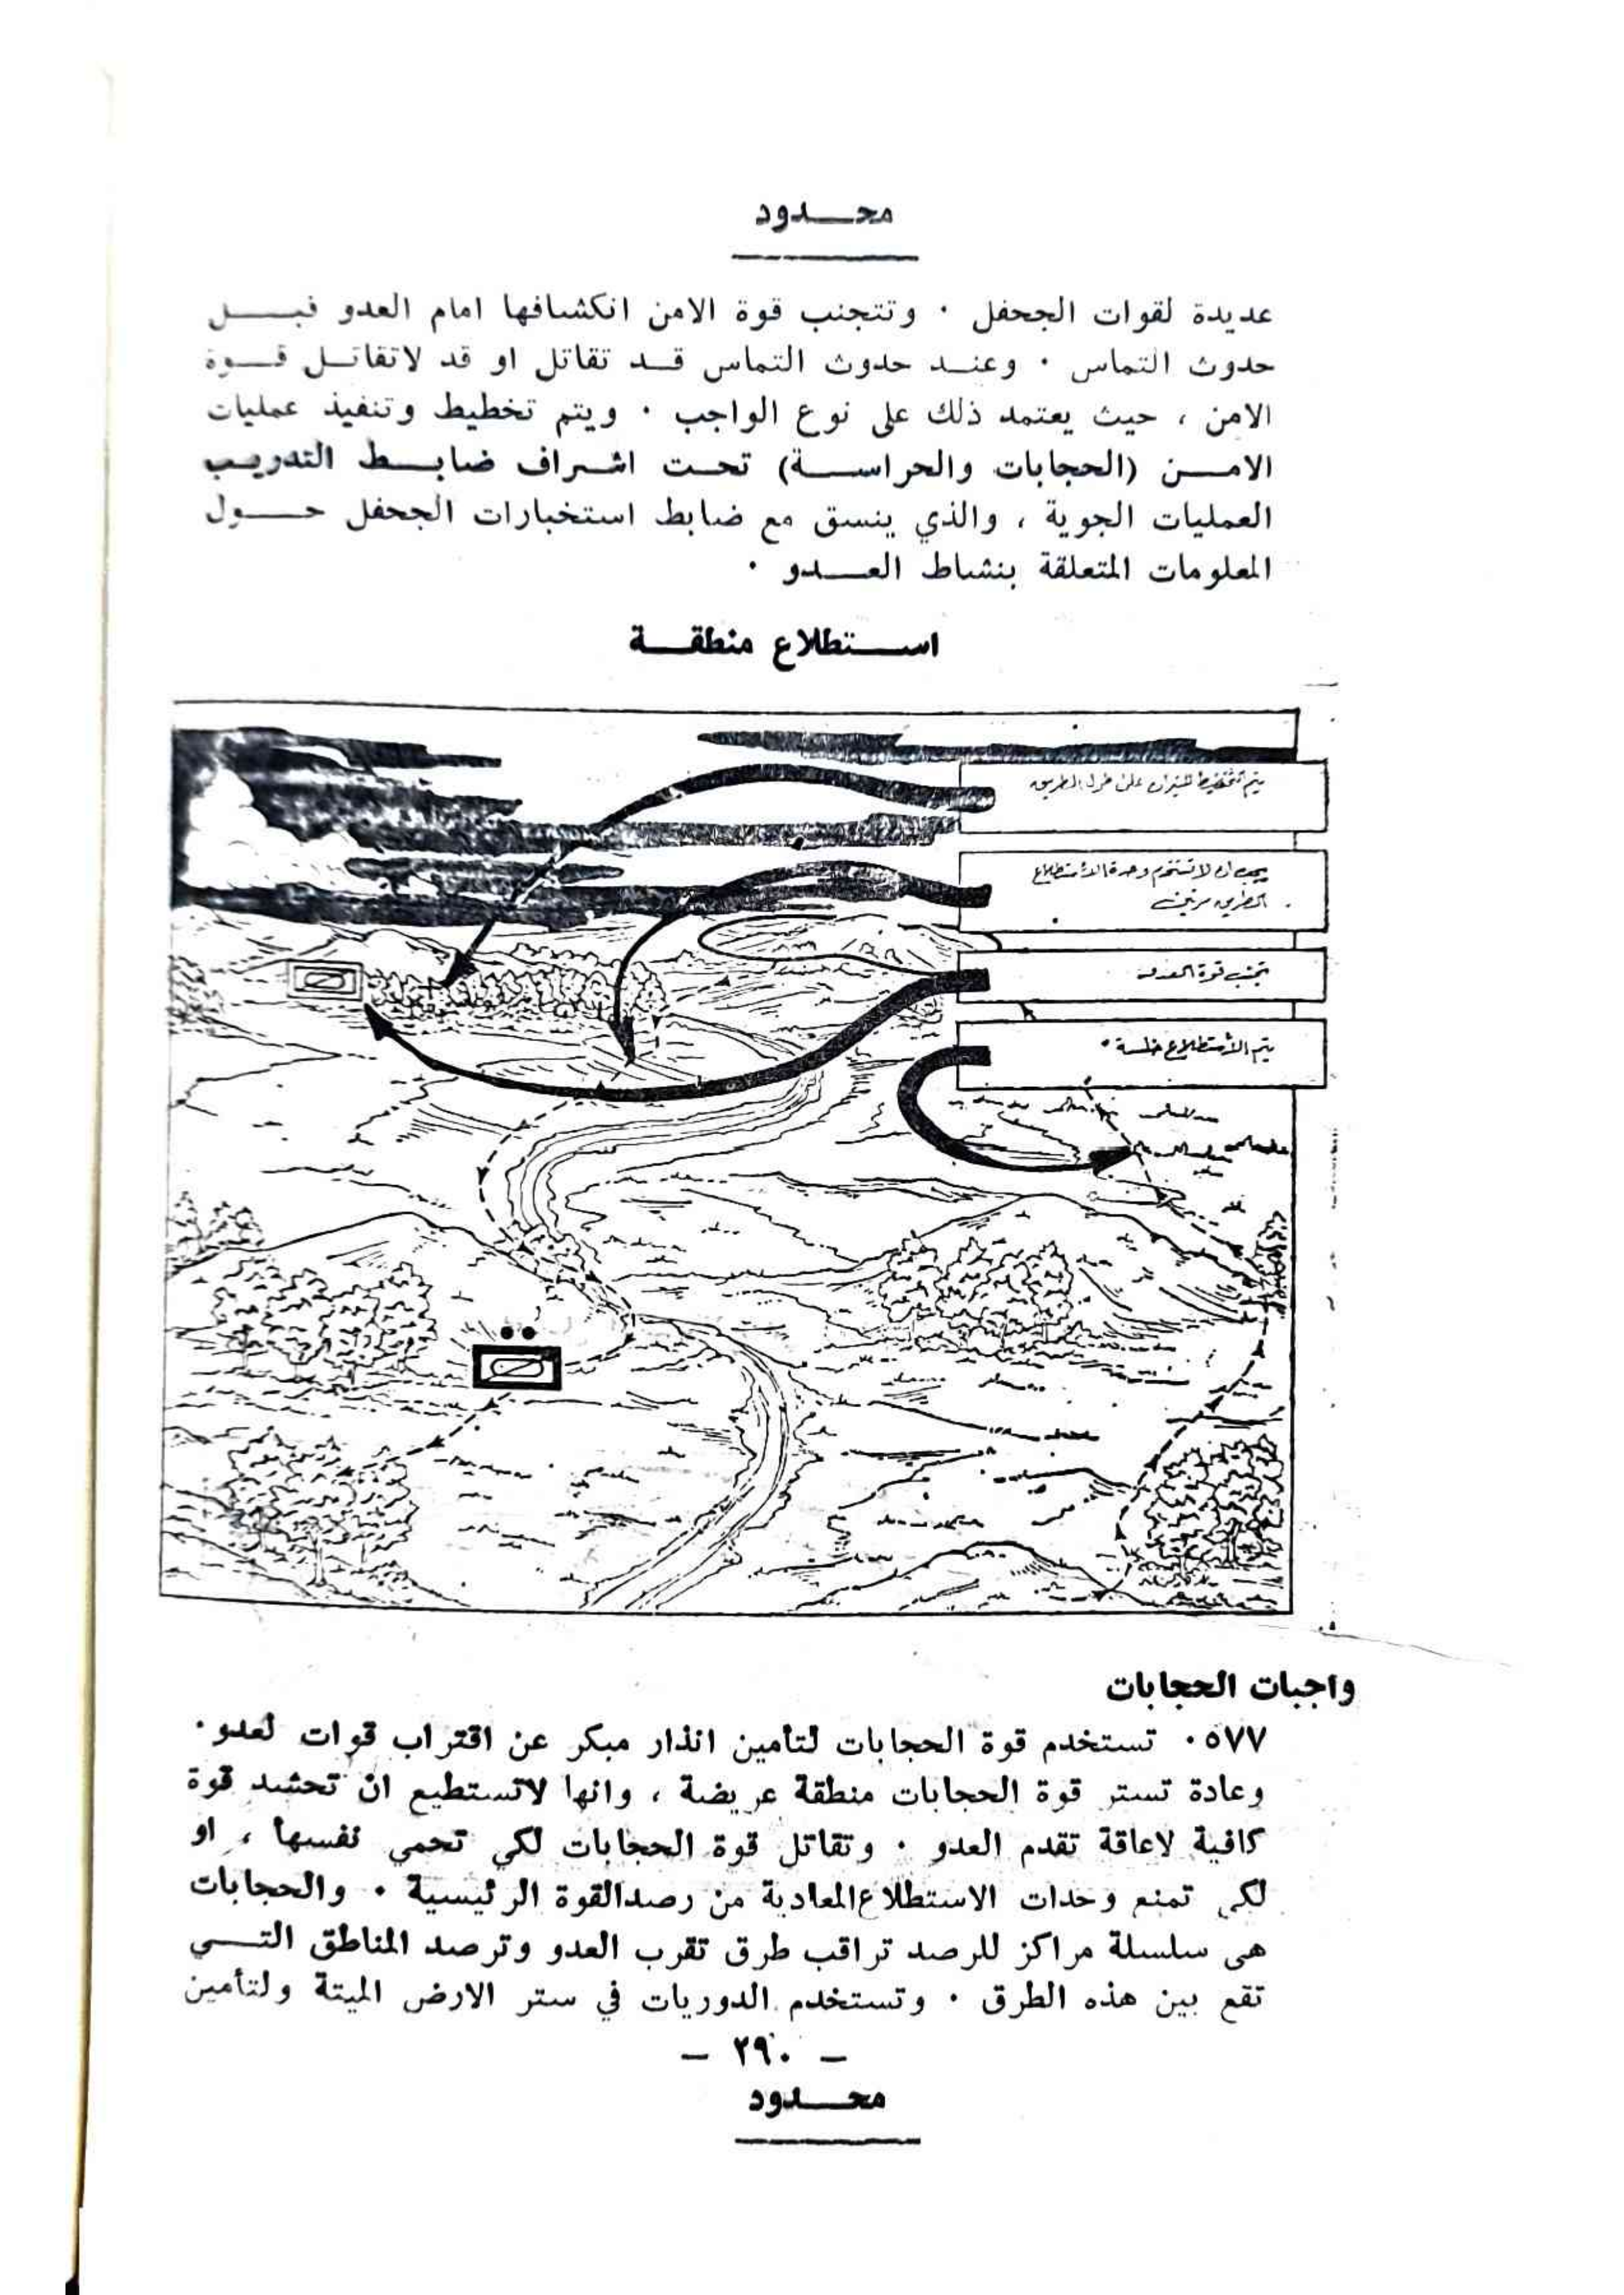 محـــدود
عديدة لقوات الجحفل ٠ وتتجنب قوة الامن انكشافها امام العدو قبـــل
حدوث التماس ٠ وعنـــد حدوث التماس قـــد تقاتل او قد لاتقاتـــل قـــوة
الامن ، حيث يعتمد ذلك على نوع الواجب ٠ ويتم تخطيط وتنفيذ عمليات
الامـــن (الحجابات والحراســـة) تحـت اشـراف ضابـــط التدريـب
العمليات الجوية ، والذي ينسق مع ضابط استخبارات الجحفل حـــول
المعلومات المتعلقة بنشاط العـــدو ٠
اســـتطلاع منطقـــة
يتم التخطيط للنيران على طول الطريق
يجب ان لا تستخدم وحدة الأستطلاع
الطريق مرتين
تجنب قوة العدو
يتم الأستطلاع خلسة ٠
واجبات الحجابات
٥٧٧٠ تستخدم قوة الحجابات لتأمين انذار مبكر عن اقتراب قوات لعدو ٠
وعادة تستر قوة الحجابات منطقة عريضة ، وانها لاتستطيع ان تحشد قوة
كافية لاعاقة تقدم العدو ٠ وتقاتل قوة الحجابات لكي تحمي نفسها ، او
لكي تمنع وحدات الاستطلاع المعادية من رصدالقوة الرئيسية ٠ والحجابات
هي سلسلة مراكز للرصد تراقب طرق تقرب العدو وترصد المناطق التـــي
تقع بين هذه الطرق ٠ وتستخدم الدوريات في ستر الارض الميتة ولتأمين
– ٢٩٠ –
محـــدود